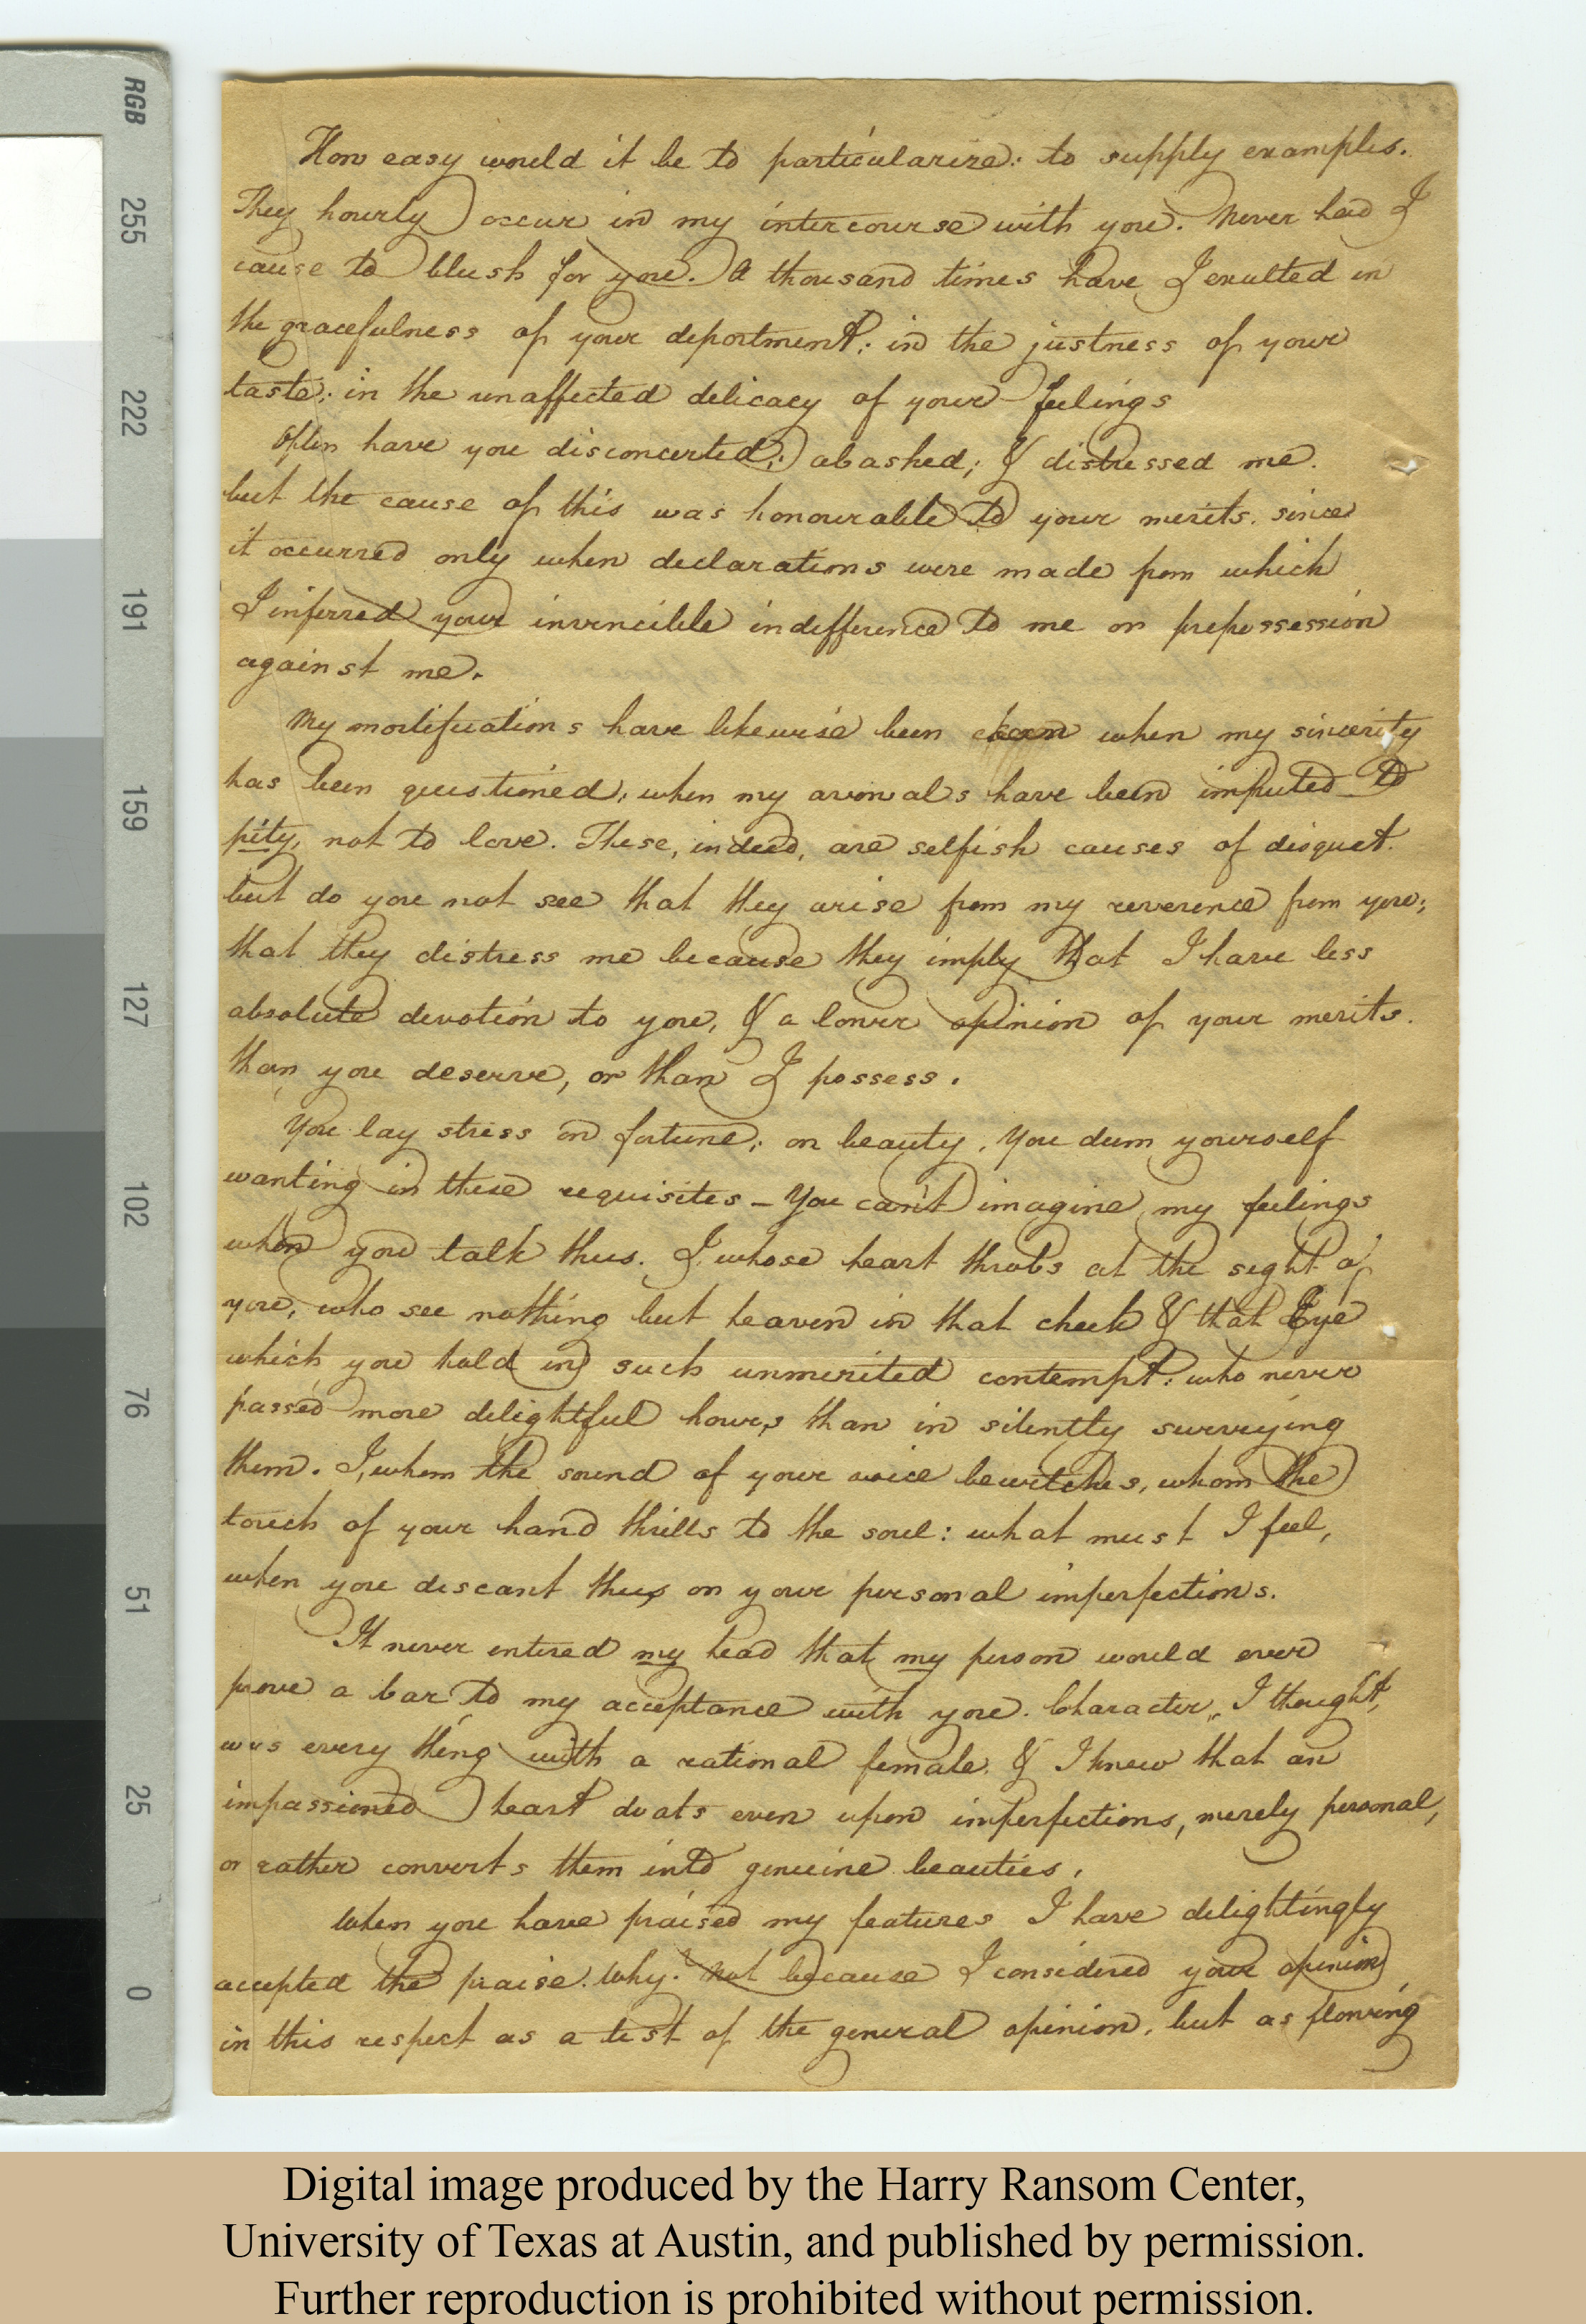 RGB
255
222
191
159
127
102
76
51
25
0
How easy would it be to particularize: to supply examples.
They hourly occur in my intercourse with you. Never had I
cause to blush for you. A thousand times have I exulted in
the gracefulness of your deportment; in the justness of your
taste; in the unaffected delicacy of your feelings
Often have you disconcerted; abashed; & distressed me.
but the cause of this was honourable to your merits. since
it occurred only when declarations were made from which
I inferred your invincible indifference to me or prepossession
against me.
My mortifications have likewise been keen when my sincerity
has been questioned; when my avowals have been imputed to
pity, not to love. These, indeed, are selfish causes of disquet.
but do you not see that they arise from my reverence from you;
that they distress me because they imply that I have less
absolute devotion to you, & a lower opinion of your merits.
than you deserve, or than I possess.
You lay stress on fortune; on beauty. You deem yourself
wanting in these requisites – You can't imagine my feelings
when you talk thus. I, whose heart throbs at the sight of
you, who see nothing but heaven in that cheek & that Eye
which you hold in such unmerited contempt: who never
passed more delightful hours than in silently surveying
them. I, whom the sound of your voice bewitches, whom the
touch of your hand thrills to the soul: what must I feel,
when you descant thus on your personal imperfections.
It never entered my head that my person would ever
prove a bar to my acceptance with you. Character, I thought,
was every thing with a rational female. & I knew that an
impassioned heart doats even upon imperfections, merely personal,
or rather converts them into genuine beauties.
When you have praised my features I have delightingly
accepted the praise. Why? Not because I considered your opinion
in this respect as a test of the general opinion, but as flowing
Digital image produced by the Harry Ransom Center,
University of Texas at Austin, and published by permission.
Further reproduction is prohibited without permission.